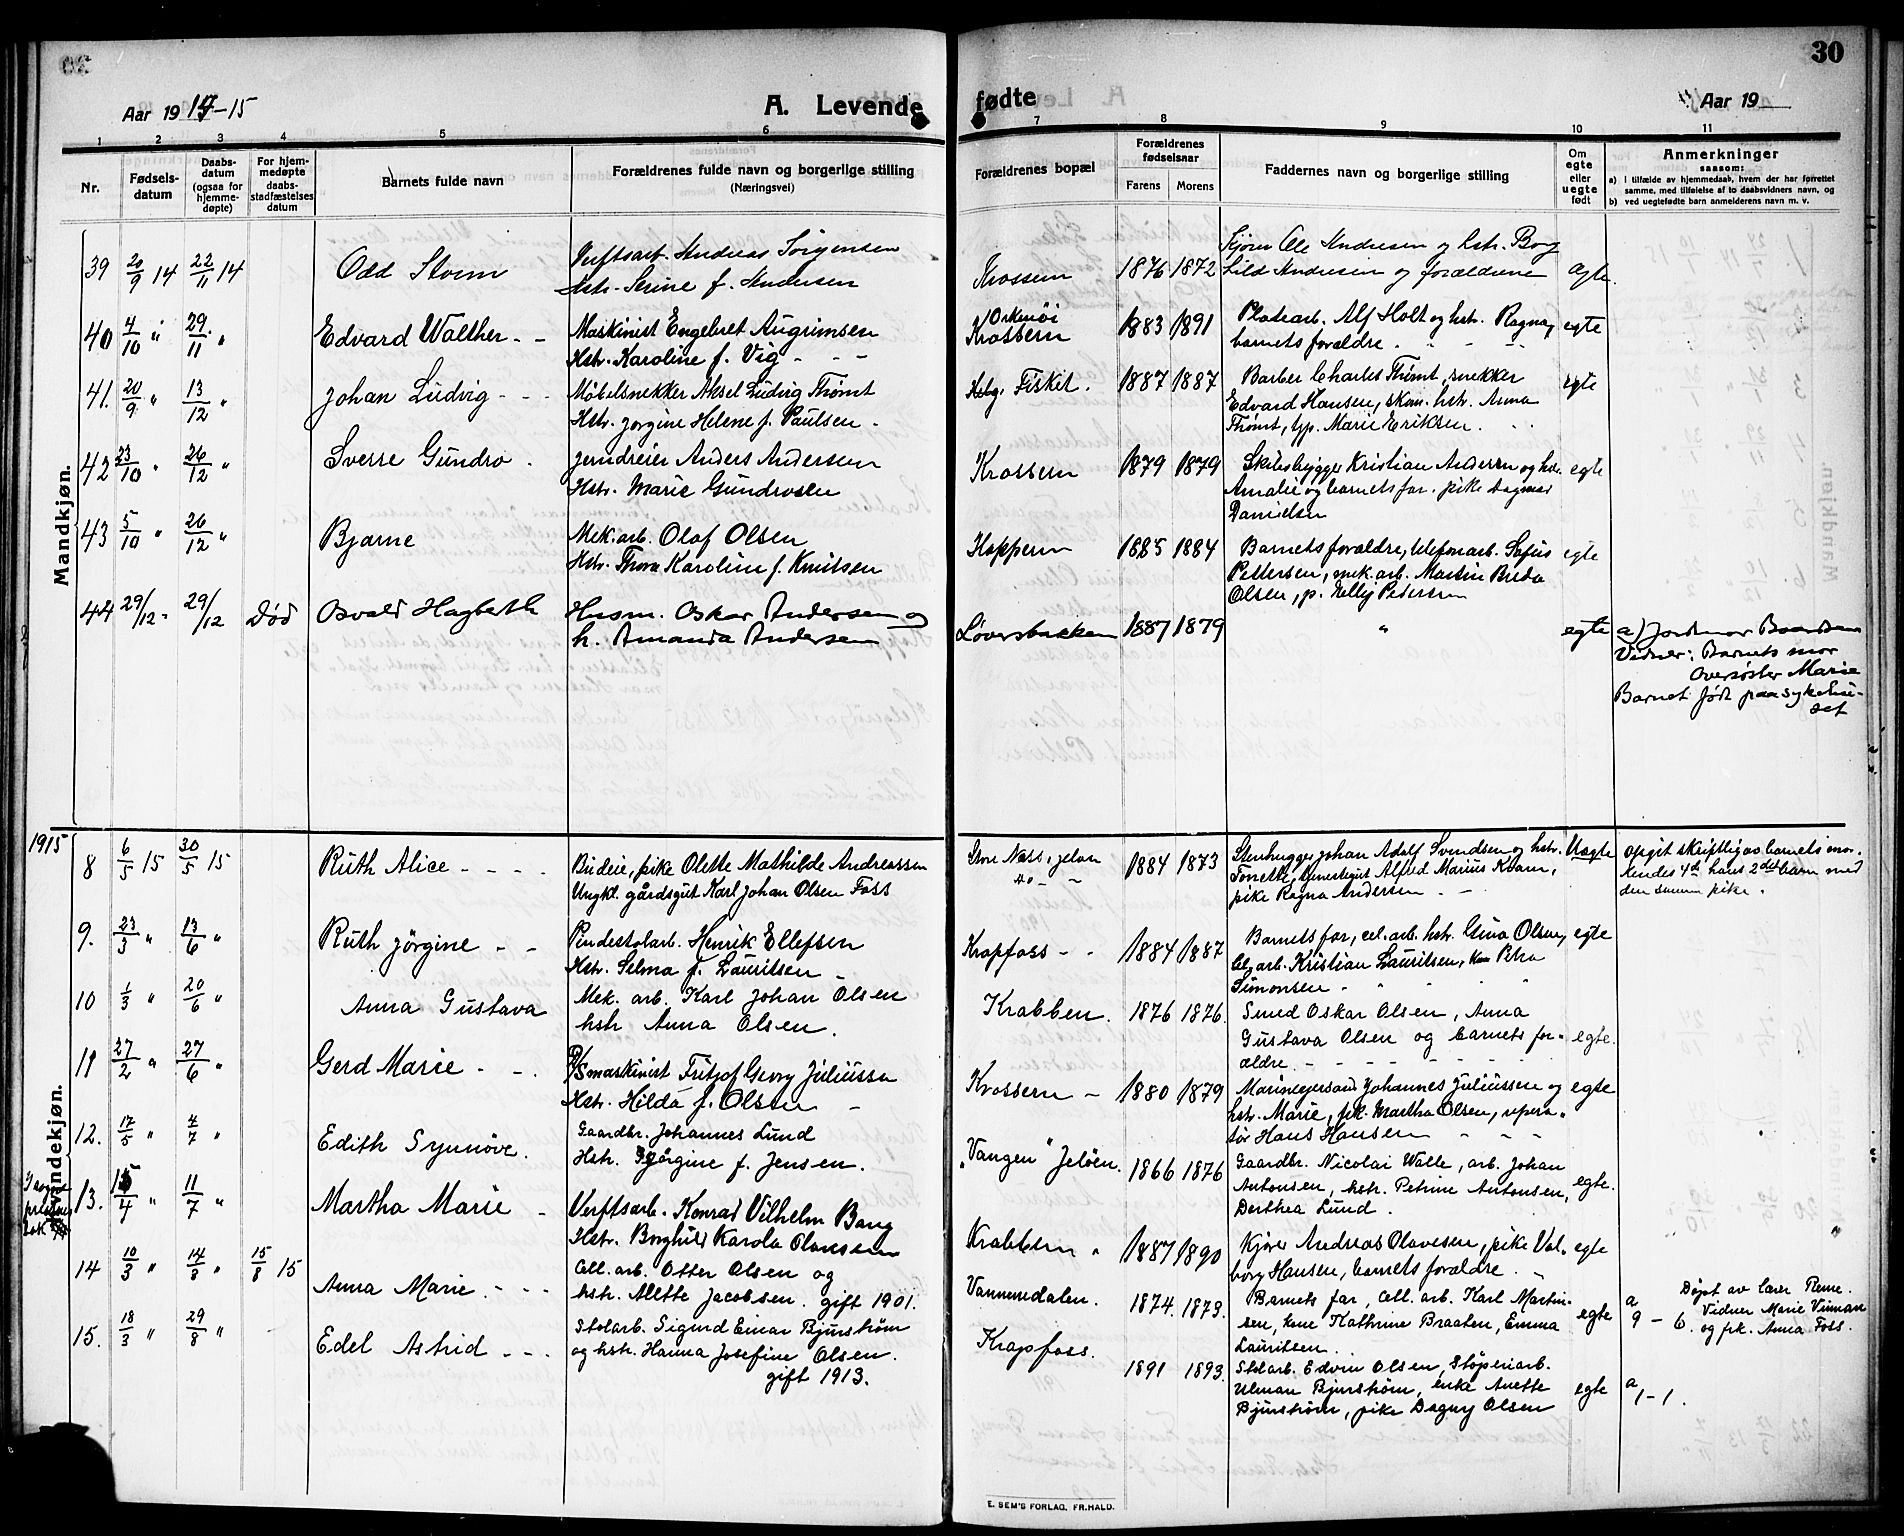 30
Aar 1914-15
A. Levende
fødte
Aar 19
1 2 3 4 5 6 7 8 9 10 11
Nr.
Fødsels-
datum
Daabs-
datum
(ogsaa for
hjemme-
døpte)
For hjem-
medøpte
daabs-
stadfæstelses
datum
Barnets fulde navn
Forældrenes fulde navn og borgerlige stilling
(Næringsvei)
Forældrenes bopæl
Forældrenes
fødselsaar
Farens Morens
Faddernes navn og borgerlige stilling
Om
egte
eller
uegte
født
Anmerkninger
saasom:
a) i tilfælde av hjemmedaab, hvem der har forrettet
samme, med tilføielse af to daabsvidners navn, og
b) ved uegtefødte barn anmelderens navn m. v.
Mandkjøn.
39 20/9 14 22/11 14 Odd Storm
Verftsarb. Andreas Sørgensen
Hstr. Serine f. Andersen
Krossern 1876 1872
Kjører Ole Andresen og hstr. Borg
hild Andresen og forældrene
egte.
40 4/10 " 29/11 " Edvard Walther - -
Maskinist Engebret Augrimsen
Hstr. Karoline f. Vig - - -
Orkenöi
Krossern 1883 1891
Platearb. Alf Holt og hstr. Ragna,
barnets forældre.
egte
41. 20/9 " 13/12 " Johan Ludvig - - -
Møbelsnekker Aksel Ludvig Thømt
Hstr. Jørgine Helene f. Paulsen.
Fisket. 1887 1887
Barber Charles Thømt, snekker
Edvard Hansen, skom. hstr. Anna
Thømt, typ. Marie Eriksen.
egte
42 23/10 " 26/12 " Sverre Gundro.
Jerndreier Anders Andersen
Hstr. Marie Gundrosen
Krossern 1879 1879
Skibsbygger Kristian Andersen og hstr.
Amalie og barnets far. pike Dagmar
Danielsen
egte
43 5/10 " 26/12 " Bjarne
Mek. arb. Olaf Olsen
Hstr. Thora Karoline f. Knutsen
Koppern 1885 1884
Barnets forældre, telefonarb. Sofus
Pettersen, mek. arb. Martin Breda
Olsen, p. Elly Pedersen
egte
44 29/12 - 29/12 Død Osvald Hagbarth
Husm. Oskar Andersen og
h. Amanda Andersen
Løversbakken 1887 1879
"
egte
a) Jordmor Baardsen
Vidner: Barnets mor
Oversøster Marie
Barnet født paa sykehu-
set
1915
Kvindekjøn.
8 6/5 15 30/5 15 Ruth Alice - - - -
Budeie, pike Olette Mathilde Andreassen
Ungkl. gårdsgut Karl Johan Olsen Foss
Store Næss, Jeløen
do - - 1884 1873
Stenhugger Johan Adolf Svendsen og hstr.
Tonette, tjenestegut Alfred Marius Kvam,
pike Ragna Andersen - -
Uegte
Opgit skriftlig av barnets mor.
Hendes 4de hans 2det barn med
den samme pike.
9. 23/3 " 13/6 " Ruth Jørgine - -
Pindestolarb. Henrik Ellefsen
Hstr. Selma f. Lauritsen -
Krapfoss - - 1884 1887
Barnets far, cel. arb. hstr. Gina Olsen,
Cel. arb. Kristian Lauritsen, Petra
Simonsen -
egte
10 1/3 " 20/6 " Anna Gustava
Mek. arb. Karl Johan Olsen
hstr Anna Olsen.
Krabben. 1876 1876.
Smed Oskar Olsen, Anna
Gustava Olsen og barnets for-
ældre. - - - - -
egte.
11 27/2 " 27/6 " Gerd Marie - -.
D/Smaskinist Fritjof Georg Juliussen
Hstr. Hilda f. Olsen -
Krossern - 1880 1879
Marinegersant Johannes Juliussen og
hstr. Marie, pk. Martha Olsen, repera-
tør Hans Hansen - - -
egte
12. 17/5 " 4/7 " Edith Synnöve.
Gaardbr. Johannes Lund
Hstr. Jørgine f. Jensen.
"Vangen" Jeløen. 1866 1876
Gaardbr. Nicolai Walle, arb. Johan
Antonsen, hstr. Petrine Antonsen,
Dorthea Lund.
egte.
13. 15/4 " 11/7 " Martha Marie -
Verftsarb. Konrad Vilhelm Bang
Hstr. Borghild Karola Olavesen
Krabben " 1887 1890
Kjører Andreas Olavesen, pike Val-
borg Hansen, barnets forældre.
egte
14 10/3 " 14/8 " 15/8 15 Anna Marie - - -
Cell. arb. Otter Olsen og
hstr. Alette Jacobsen. gift 1901.
Vannmedalen. 1874. 1873.
Barnets far, Cell. arb. Karl Martin-
sen, kone Kathrine Braaten, Emma
Lauritsen.
egte
a
9 - 6.
Døpt av lærer Reme.
Vidner Marie Vinnan
og frk. Anna Foss.
15. 18/3 " 29/8 " Edel Astrid - - -
Stolarb. Sigurd Einar Bjurstrøm
og hstr. Hanna Josefine Olsen.
gift 1913.
Krapfoss. 1891 1893.
Stolarb. Edvin Olsen, Støperiarb.
Ulman Bjurstrøm, enke Anette
Bjurstrøm, pike Dagny Olsen
egte
a
1 - 1.
E. SEM'S FORLAG, FR.HALD.